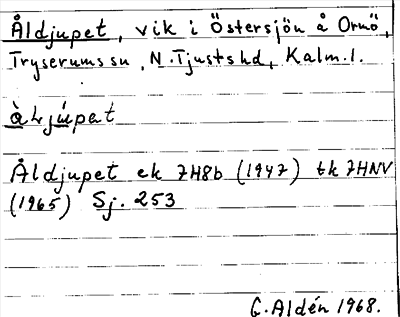 Åldjupet, vik i Östersjön å Ornö,
Tryserums sn, N. Tjusts hd, Kalm. l.
àɫjúpet
Åldjupet ek 7H8b (1947) tk 7HNV
(1965) Sj. 253
G. Aldén 1968.